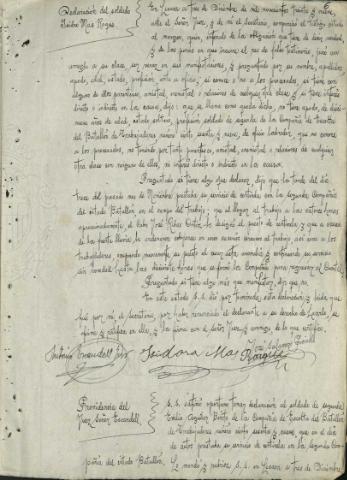 Declaración del soldado
Isidro Mas Roges
En Gerona a tres de Diciembre de mil novecientos treinta y nueve,
ante el Señor Juez, y de mi el Secretario, compareció el testigo citado
al margen, quien, enterado de la obligación que tiene de decir verdad,
y de las penas en que incurre el reo de falso testimonio, juró con
arreglo a su clase, ser veraz en sus manifestaciones, y preguntado por su nombre, apellidos,
apodo, edad, estado, profesión, arte u oficio, si conoce o no a los procesados, si tiene con
alguno de ellos parentesco, amistad, enemistad o relaciones de cualquier otra clase y si tiene interés
directo o indirecto en la causa, dijo: que se llama como queda dicho, no tiene apodo, de
años de edad, estado soltero, profesión soldado de segunda de la Compañía de Escolta
del Batallón de Trabajadores número ciento sesenta y nueve, de oficio labrador, que no conoce
a los procesados, no teniendo por tanto parentesco, amistad, enemistad o relaciones de cualquier
otra clase con ninguno de ellos, ni interés directo o indirecto en la causa.
Preguntado si tiene algo que declarar, dijo que la tarde del día
tres del pasado mes de Noviembre prestaba su servicio de
en la segunda Compañía
del citado Batallón, en el campo del trabajo; que al llegar al trabajo a las catorce horas
aproximadamente, el Cabo José Ribas Ortiz, le designó el puesto de
y que a causa
de la fuerte lluvia, le ordenaron
en una caseta cercana al trabajo, así como a los
trabajadores,
nuevamente su puesto al cesar esta
y continuando su servicio
sin novedad hasta las diecisiete horas que se formó la Compañía para regresar al Cuartel.
Preguntado si tiene algo más que manifestar, dijo que no.
En este estado S.S. dió por terminada esta declaración, y leída que
fué por mi, el Secretario, por haber renunciado el declarante a su derecho de leerla, se
afirma y ratifica en ella, y la firma con el Señor Juez, y conmigo, de lo que certifico.
Antonio Escandell
Isidoro Mas
José
Providencia del
Juez Señor Escandell
S.S. estimó oportuno tomar declaración al soldado de segunda
de la Compañía de Escolta del Batallón
de Trabajadores número ciento sesenta y nueve, que en el día
de autos prestaba su servicio de
en la segunda Com-
pañía del citado Batallón. Lo mandó y rubrica S.S. en Gerona a tres de Diciembre